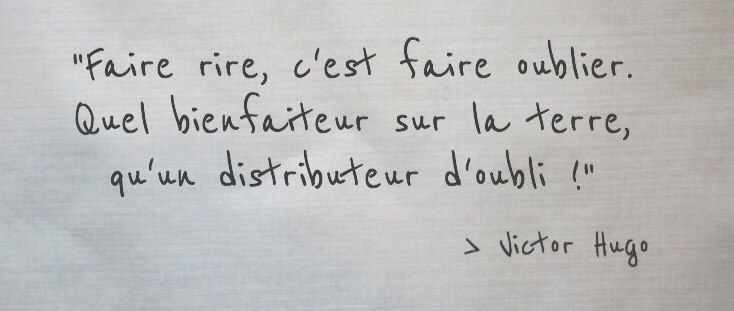 "Faire rire, c'est faire oublier.
Quel bienfaiteur sur la terre,
qu'un distributeur d'oubli !"
> Victor Hugo